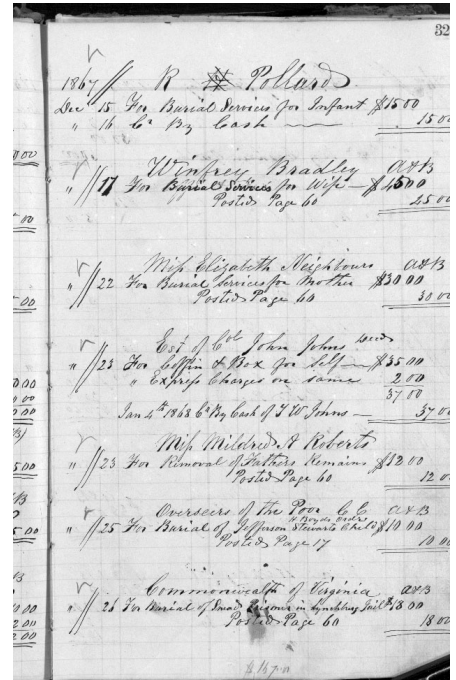 32
1867 R Pollard
Dec 15 For Burial Services for Infant $15 00
" 16 Cr By Cash 15 00
Winfrey Bradley A&B
" 17 For Burial Services for Wife $45 00
Posted Page 60 45 00
Miss Elizabeth Neighbours A&B
" 22 For Burial Services for Mother $30 00
Posted Page 60 30 00
Est of Col John Johns Decd
" 23 For Coffin & Box for Self $35 00
" Express Charges on same 2 00
37 00
Jan 4th 1868 Cr By Cash of T W Johns 37 00
Miss Mildred A Roberts
" 23 For Removal of Fathers Remains $12 00
Posted Page 60 12 00
Overseers of the Poor C C A&B
" 25 For Burial of Jefferson Stewarts Child $10 00
Posted Page 17 10 00
Commonwealth of Virginia A&B
" 26 For Burial of Prisoner in Lynchburg Jail $18 00
Posted Page 60 18 00